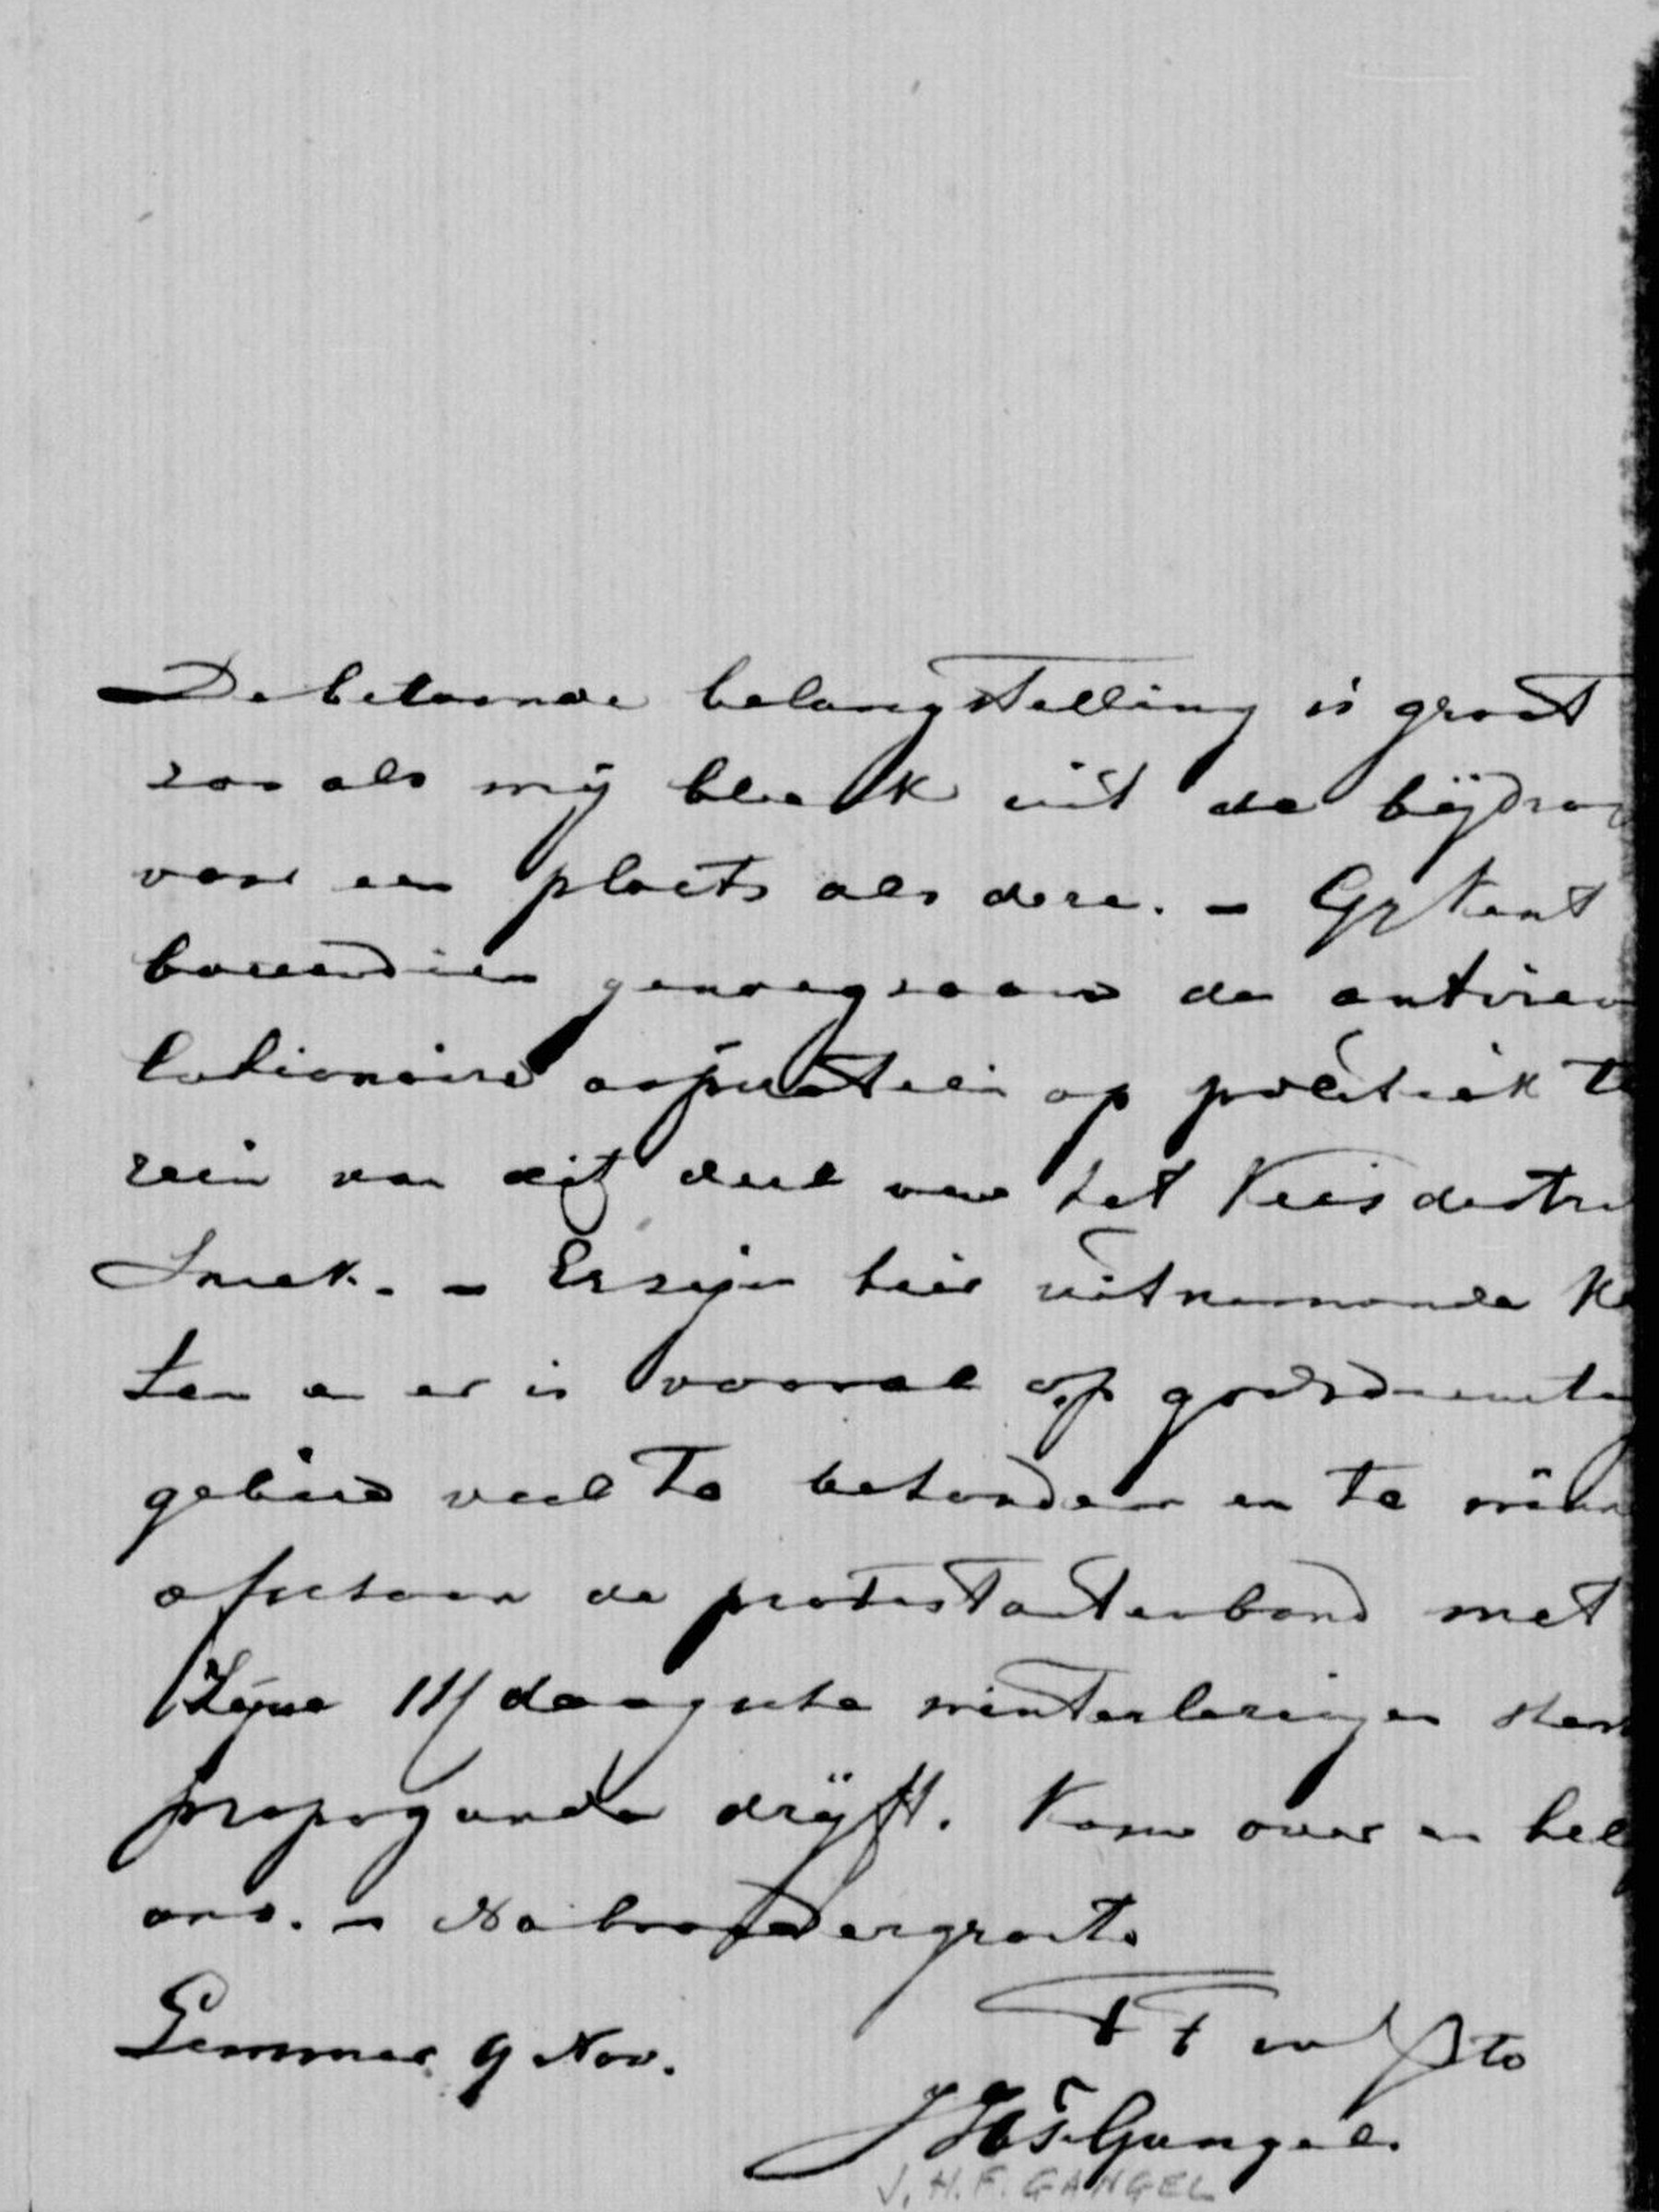 De betoonde belangstelling is groot
zoo als mij bleek uit de bijdrag
voor een plaats als deze. – Gy kent
bovendien genoegzaam de antirevo
lutionaire aspiratiën op politiek te
rein van dit deel van het Kiesdistri
Sneek. – Er zijn hier uitnemende K
ten en er is vooral op godsdienstig
gebied veel te behouden en te winn
ofschoon de protestantenbond met
Zijne 14/daagsche winterlezingen sterk
propaganda drijft. Kom over en help
ons. – Na broedergroete
Lemmer 9 Nov.
JHF Gangel.
J.H.F. GANGEL